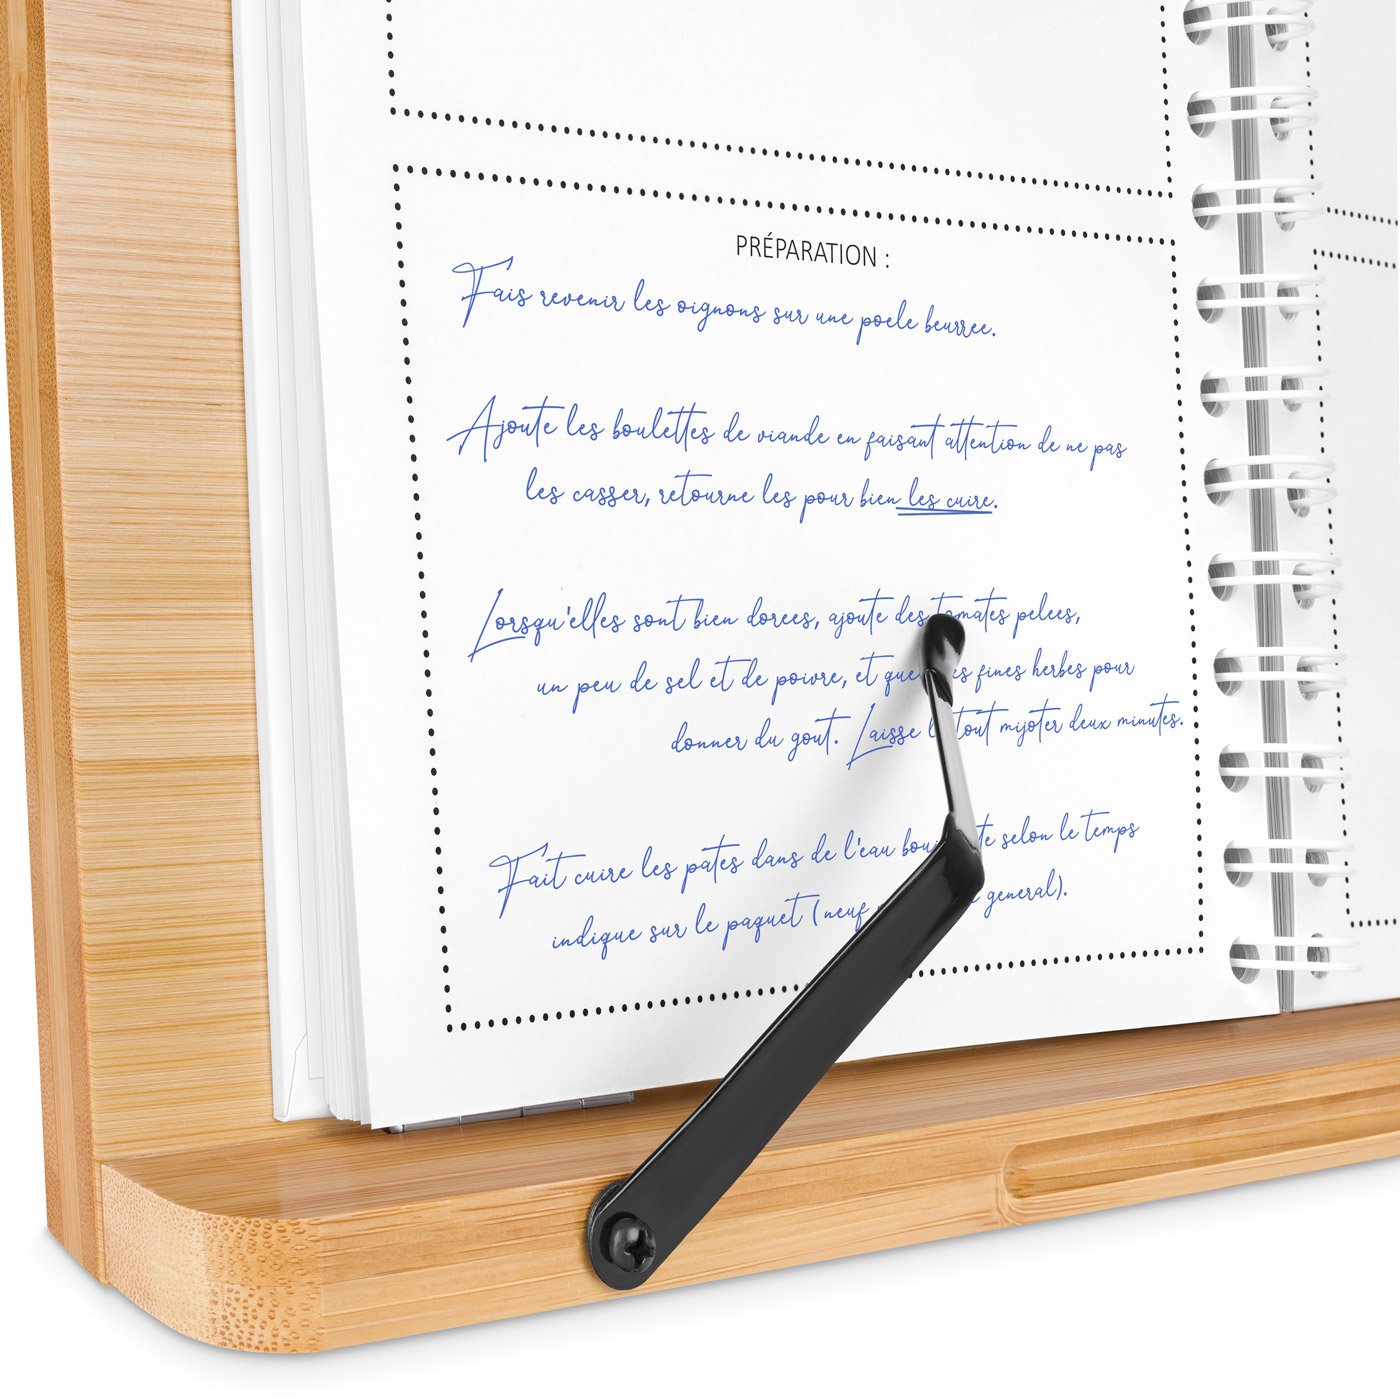 PRÉPARATION :
Fais revenir les oignons sur une poele beurree.
Ajoute les boulettes de viande en faisant attention de ne pas
les casser, retourne les pour bien les cuire.
Lorsqu'elles sont bien dorees, ajoute des tomates pelees,
un peu de sel et de poivre, et fines herbes pour
donner du gout. Laisse tout mijoter deux minutes.
Fait cuire les pates dans de l'eau selon le temps
indique sur le paquet (neuf general).